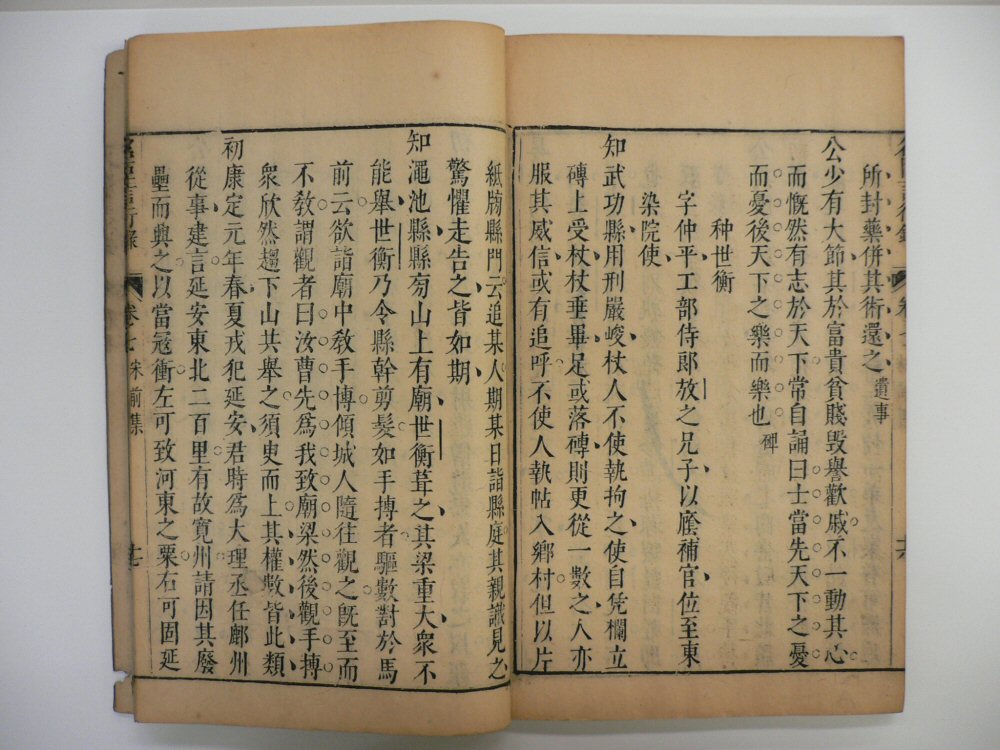 所封藥併其術還之遺事
公少有大節其於富貴貧賤毀譽歡戚不一動其心
而慨然有志於天下常自誦曰士當先天下之憂
而憂後天下之樂而樂也碑
种世衡
字仲平工部侍郎放之兄子以廕補官位至東
染院使
知武功縣用刑嚴峻杖人不使執拘之使自凭欄立
磚上受杖杖垂畢足或落磚則更從一數之人亦
服其威信或有追呼不使人執帖入鄉村但以片
紙牓縣門云追某人期某日詣縣庭其親識見之
驚懼走告之皆如期
知澠池縣縣旁山上有廟世衡葺之其梁重大衆不
能舉世衡乃令縣幹剪髮如手搏者驅數對於馬
前云欲詣廟中教手博傾城人隨往觀之既至而
不教謂觀者曰汝曹先爲我致廟梁然後觀手搏
衆欣然趨下山共舉之須臾而上其權數皆此類
初康定元年春夏戎犯延安君時爲大理丞任鄜州
從事建言延安東北二百里有故寬州請因其廢
壘而興之以當寇衝左可致河東之粟右可固延
名臣言行錄
卷七
宋前集